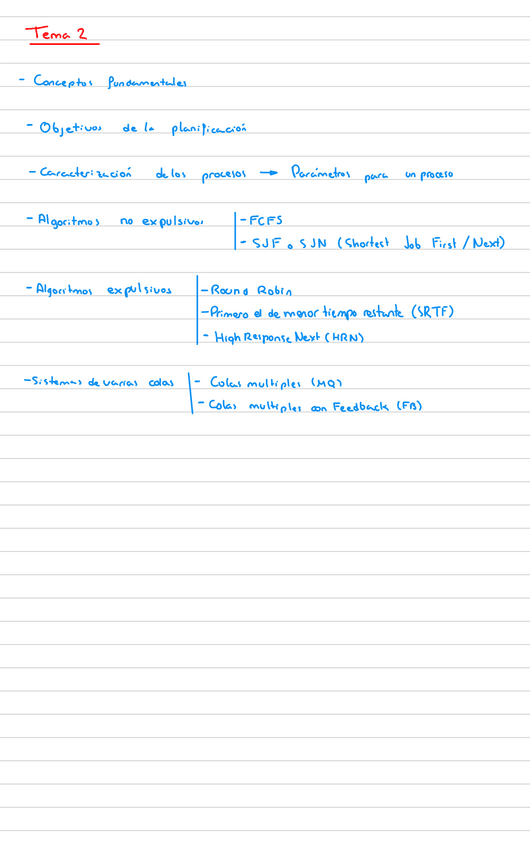 Tema 2
- Conceptos fundamentales
- Objetivos de la planificación
- Caracterización de los procesos → Parámetros para un proceso
- Algoritmos no expulsivos - FCFS
- SJF o SJN (Shortest Job First / Next)
- Algoritmos expulsivos - Round Robin
- Primero el de menor tiempo restante (SRTF)
- High Response Next (HRN)
- Sistemas de varias colas - Colas multiples (MQ)
- Colas multiples con Feedback (FB)